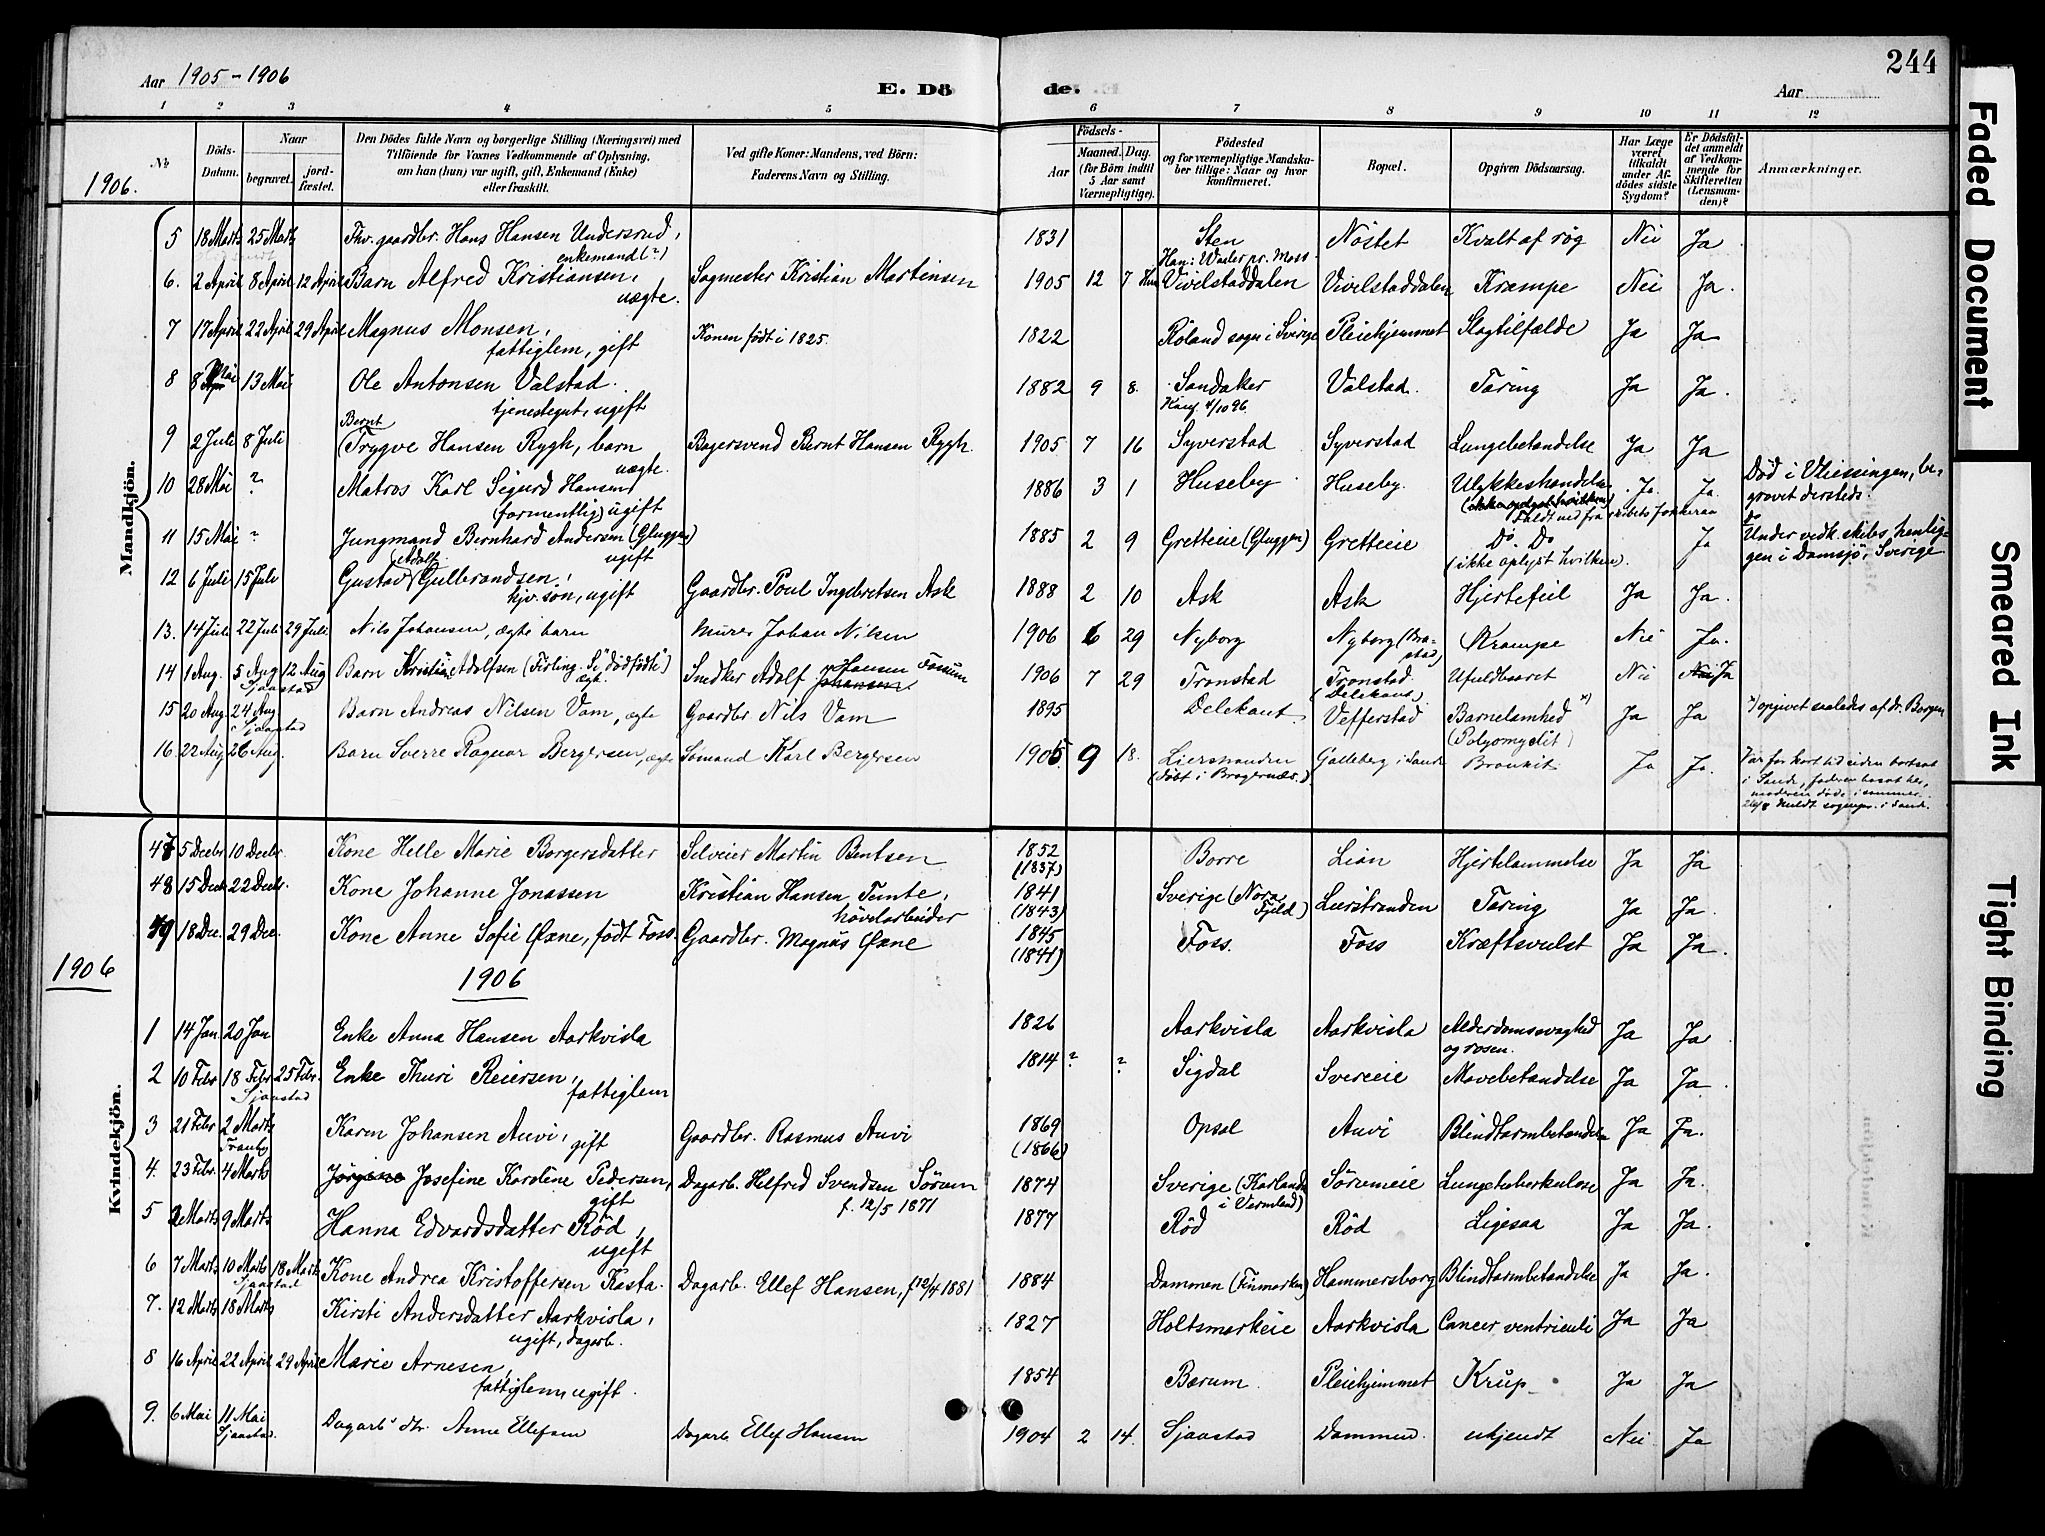 244
Aar 1905-1906
E. Döde.
Aar
1 2 3 4 5 6 7 8 9 10 11 12
No
Döds-Datum.
Naar
begravet.
jord-fæstet.
Den Dödes fulde Navn og borgerlige Stilling (Næringsvei) med
Tilföiende for Voxnes Vedkommende af Oplysning,
om han (hun) var ugift, gift, Enkemand (Enke)
eller fraskilt.
Ved gifte Koner: Mandens, ved Börn:
Faderens Navn og Stilling.
Födsels-
Aar
Maaned. Dag.
(for Börn indtil
5 Aar samt
Værnepligtige).
Födested
og for værnepligtige Mandska-
ber tillige: Naar og hvor
konfirmeret.
Bopæl.
Opgiven Dödsaarsag.
Har Læge
været
tilkaldt
under Af-
dödes sidste
Sygdom?
Er Dödsfal-
det anmeldt
af Vedkom-
mende for
Skifteretten
(Lensman-
den)?
Anmærkninger.
1906.
Mandkjön.
5 18 Marts 25 Marts Fhv. gaardbr. Hans Hansen Undersrud, enkemand(?) 1831 Sten Nöstet Kvalt af røg Nei Ja
6. 2 April 8 April 12 April Barn Alfred Kristiansen, uægte. Sagmester Kristian Martinsen 1905 12 7 Vivelstaddalen Vivelstaddalen Krampe Nei Ja.
7 17 April 22 April 29 April Magnus Monsen, fattiglem, gift Konen født i 1825. 1822 Röland sogn i Sverige Pleiehjemmet Slagtilfælde Ja Ja
8 8 Mai 13 Mai Ole Antonsen Valstad. tjenestegut, ugift 1882 9 8. Sandaker Konf. 4/10 96 Valstad. Tæring Ja Ja.
9 2 Juli 8 Juli Bernt Trygve Hansen Rygh, barn uægte. Bagersvend Bernt Hansen Rygh. 1905 7 16 Syverstad Syverstad Lungebetændelse Ja Ja
10 28 Mai ? Matros Karl Sigurd Hansen (formentlig) ugift 1886 3 1 Huseby Huseby. Ulykkeshændelse Ja. Ja. Död i Vliessingen, be-
gravet dersteds.
11 15 Mai ? Jungmand Bernhard Andersen (Gluggen) ugift 1885 2 9 Gretteeie (Gluggen) Gretteeie Do. Do (ikke oplyst hvilken). Ja Under vedk. skibs henlig-
gen i Domsjö, Sverige
12 6 Juli 15 Juli Gustav Adolf Gulbrandsen, hjv. søn, ugift Gaardbr. Poul Ingebretsen Ask 1888 2 10 Ask Ask Hjertefeil Ja Ja.
13. 14 Juli 22 Juli 29 Juli Nils Johansen, ægte barn Murer Johan Nilsen 1906 6 29 Nyborg Nyborg (Bra-
stad) Krampe Nei Ja.
14 1 Aug. 5 Aug Sjaastad 12 Aug Barn Kristian Adolfsen (Tvilling. Se "dødfødte") ægt. Snedker Adolf Johansen Hansen Fossum 1906 7 29 Tronstad Tronstad Ufuldbaaret Nei Nei Ja
15 20 Aug. 24 Aug i Sjaastad Barn Andreas Nilsen Vam, ægte Gaardbr Nils Vam 1895 Delekaut (Delekaut) Vefferstad Barnelamhed x) (Polyomyelit) Ja Ja x) opgivet saaledes af dr. Borgen
16. 22 Aug 26 Aug. Barn Sverre Ragnar Bergersen, ægte Sömand Karl Bergersen 1905 9 18. Lierstranden (Født i Bragernæs) Galleberg i Sande Bronkit Ja Ja. Var for kort tid siden bortsat
i Sande, faderen bosat her,
moderen døde i sommer.
Kvindekjön.
47 5 Decbr 10 Decbr. Kone Helle Marie Borgersdatter Selveier Martin Bentsen 1852 (1837) Borre Lian Hjertelammelse Ja Ja
48 15 Decb 22 Decbr. Kone Johanne Jonassen Kristian Hansen Temte, hövelarbeider 1841 (1843) Sverige (Nora Fjeld) Lierstranden Tæring Ja Ja.
49 18 Dec. 29 Dec. Kone Anne Sofie Øxne, født Foss. Gaardbr. Magnus Øxne 1845 (1841) Foss. Foss Kræftsvulst Ja Ja.
1906
1906
1 14 Jan 20 Jan Enke Anna Hansen Aarkvisla 1826 Aarkvisla Aarkvisla Alderdomssvaghed og rosen. Ja Ja
2 10 Febr 18 Febr Sjaastad 25 Febr. Enke Thuri Reiersen, fattiglem 1814 ? ? Sigdal Svereeie Mavebetændelse Ja Ja.
3 21 Febr 2 Marts Tranby Karen Johansen Auvi, gift Gaardbr. Rasmus Auvi 1869 (1866) Opsal Auvi Blindtarmbetændelse Ja Ja.
4. 23 Febr. 4 Marts Jörgine Josefine Karoline Pedersen, gift Dagarb. Helfred Svendsen Sörum f. 12/5 1871 1874 Sverige (Karlanda i Vermland) Sörumeie Lungetuberkulose Ja Ja.
5 2 Marts 9 Marts Hanna Edvardsdatter Röd, ugift 1877 Röd Röd Ligesaa Ja Ja.
6 7 Marts 10 Marts Sjaastad 18 Marts Kone Andrea Kristoffersen Kasta. Dagarb. Ellef Hansen, f 12/4 1881 1884 Dammen (Finmarken) Hammersborg Blindtarmbetændelse Ja Ja.
7. 12 Marts 18 Marts Kirsti Andersdatter Aarkvisla, ugift, dagarb. 1827 Holtsmarkeie Aarkvisla Cancer ventriculi Ja Ja
8 16 April 22 April 29 April Marie Arnesen, fattiglem, ugift. 1854 Bærum. Pleiehjemmet Krup. Ja Ja
9. 6 Mai 11 Mai Sjaastad. Dagarb's dtr. Anne Ellefsen Dagarb. Ellef Hansen 1904 2 14. Sjaastad Dammen. ukjendt Nei. Ja
Faded Document
Smeared Ink
Tight Binding